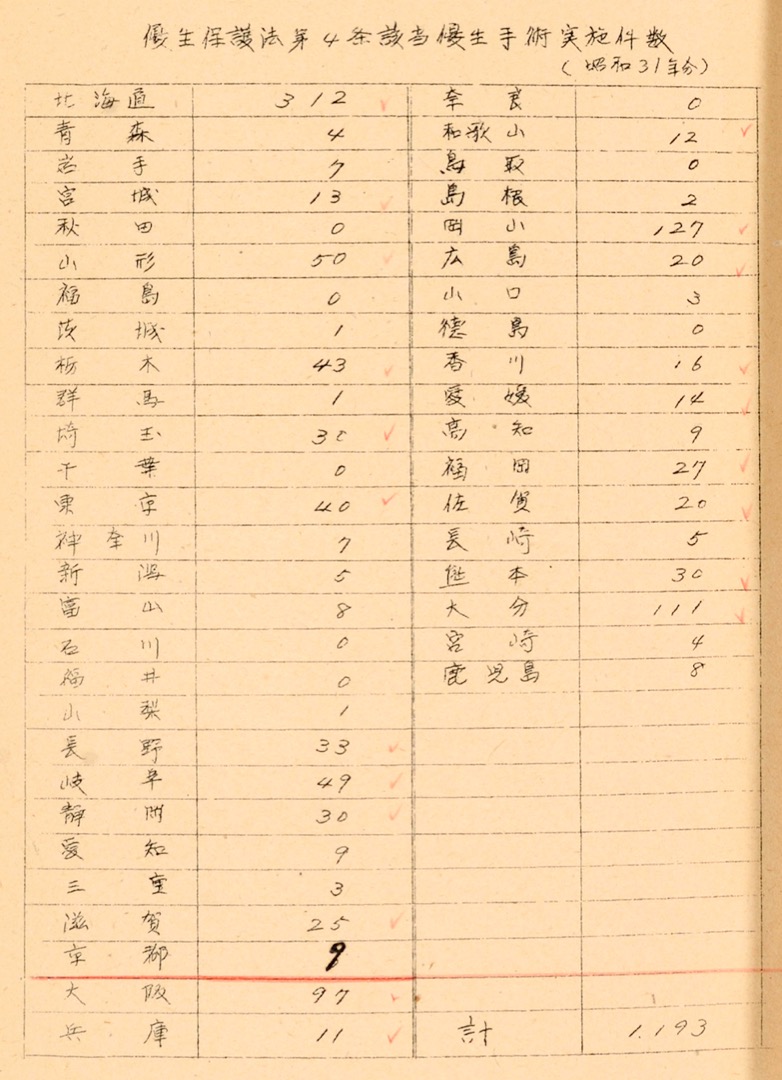 優生保護法第4条該当優生手術実施件数
(昭和31年分)
北海道 312
青森 4
岩手 7
宮城 13
秋田 0
山形 50
福島 0
茨城 1
栃木 43
群馬 1
埼玉 30
千葉 0
東京 40
神奈川 7
新潟 5
富山 8
石川 0
福井 0
山梨 1
長野 33
岐阜 49
静岡 30
愛知 9
三重 3
滋賀 25
京都 9
大阪 97
兵庫 11
奈良 0
和歌山 12
鳥取 0
島根 2
岡山 127
広島 20
山口 3
徳島 0
香川 16
愛媛 14
高知 9
福岡 27
佐賀 20
長崎 5
熊本 30
大分 111
宮崎 4
鹿児島 8
計 1.193